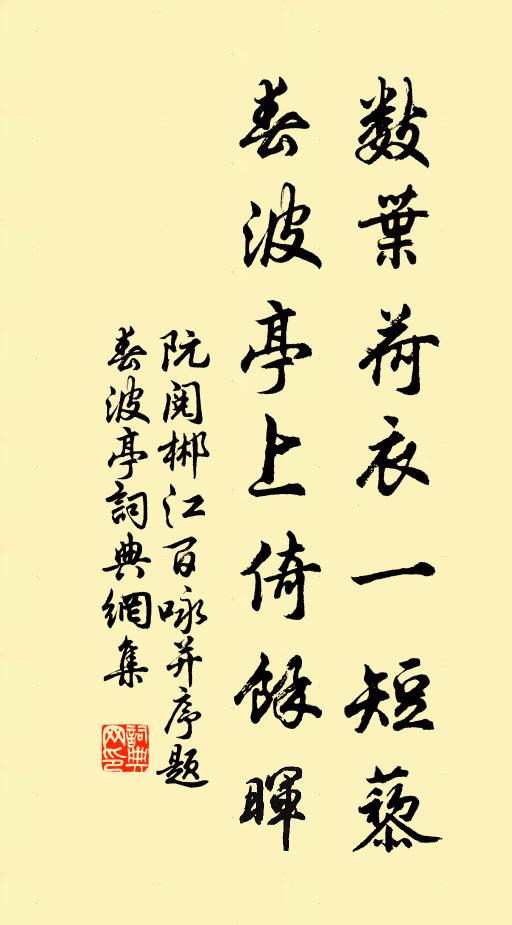 數葉荷衣一短藜
春波亭上倚餘暉
阮閱郴江百咏并序題
春波亭詞典網集
詞典网印